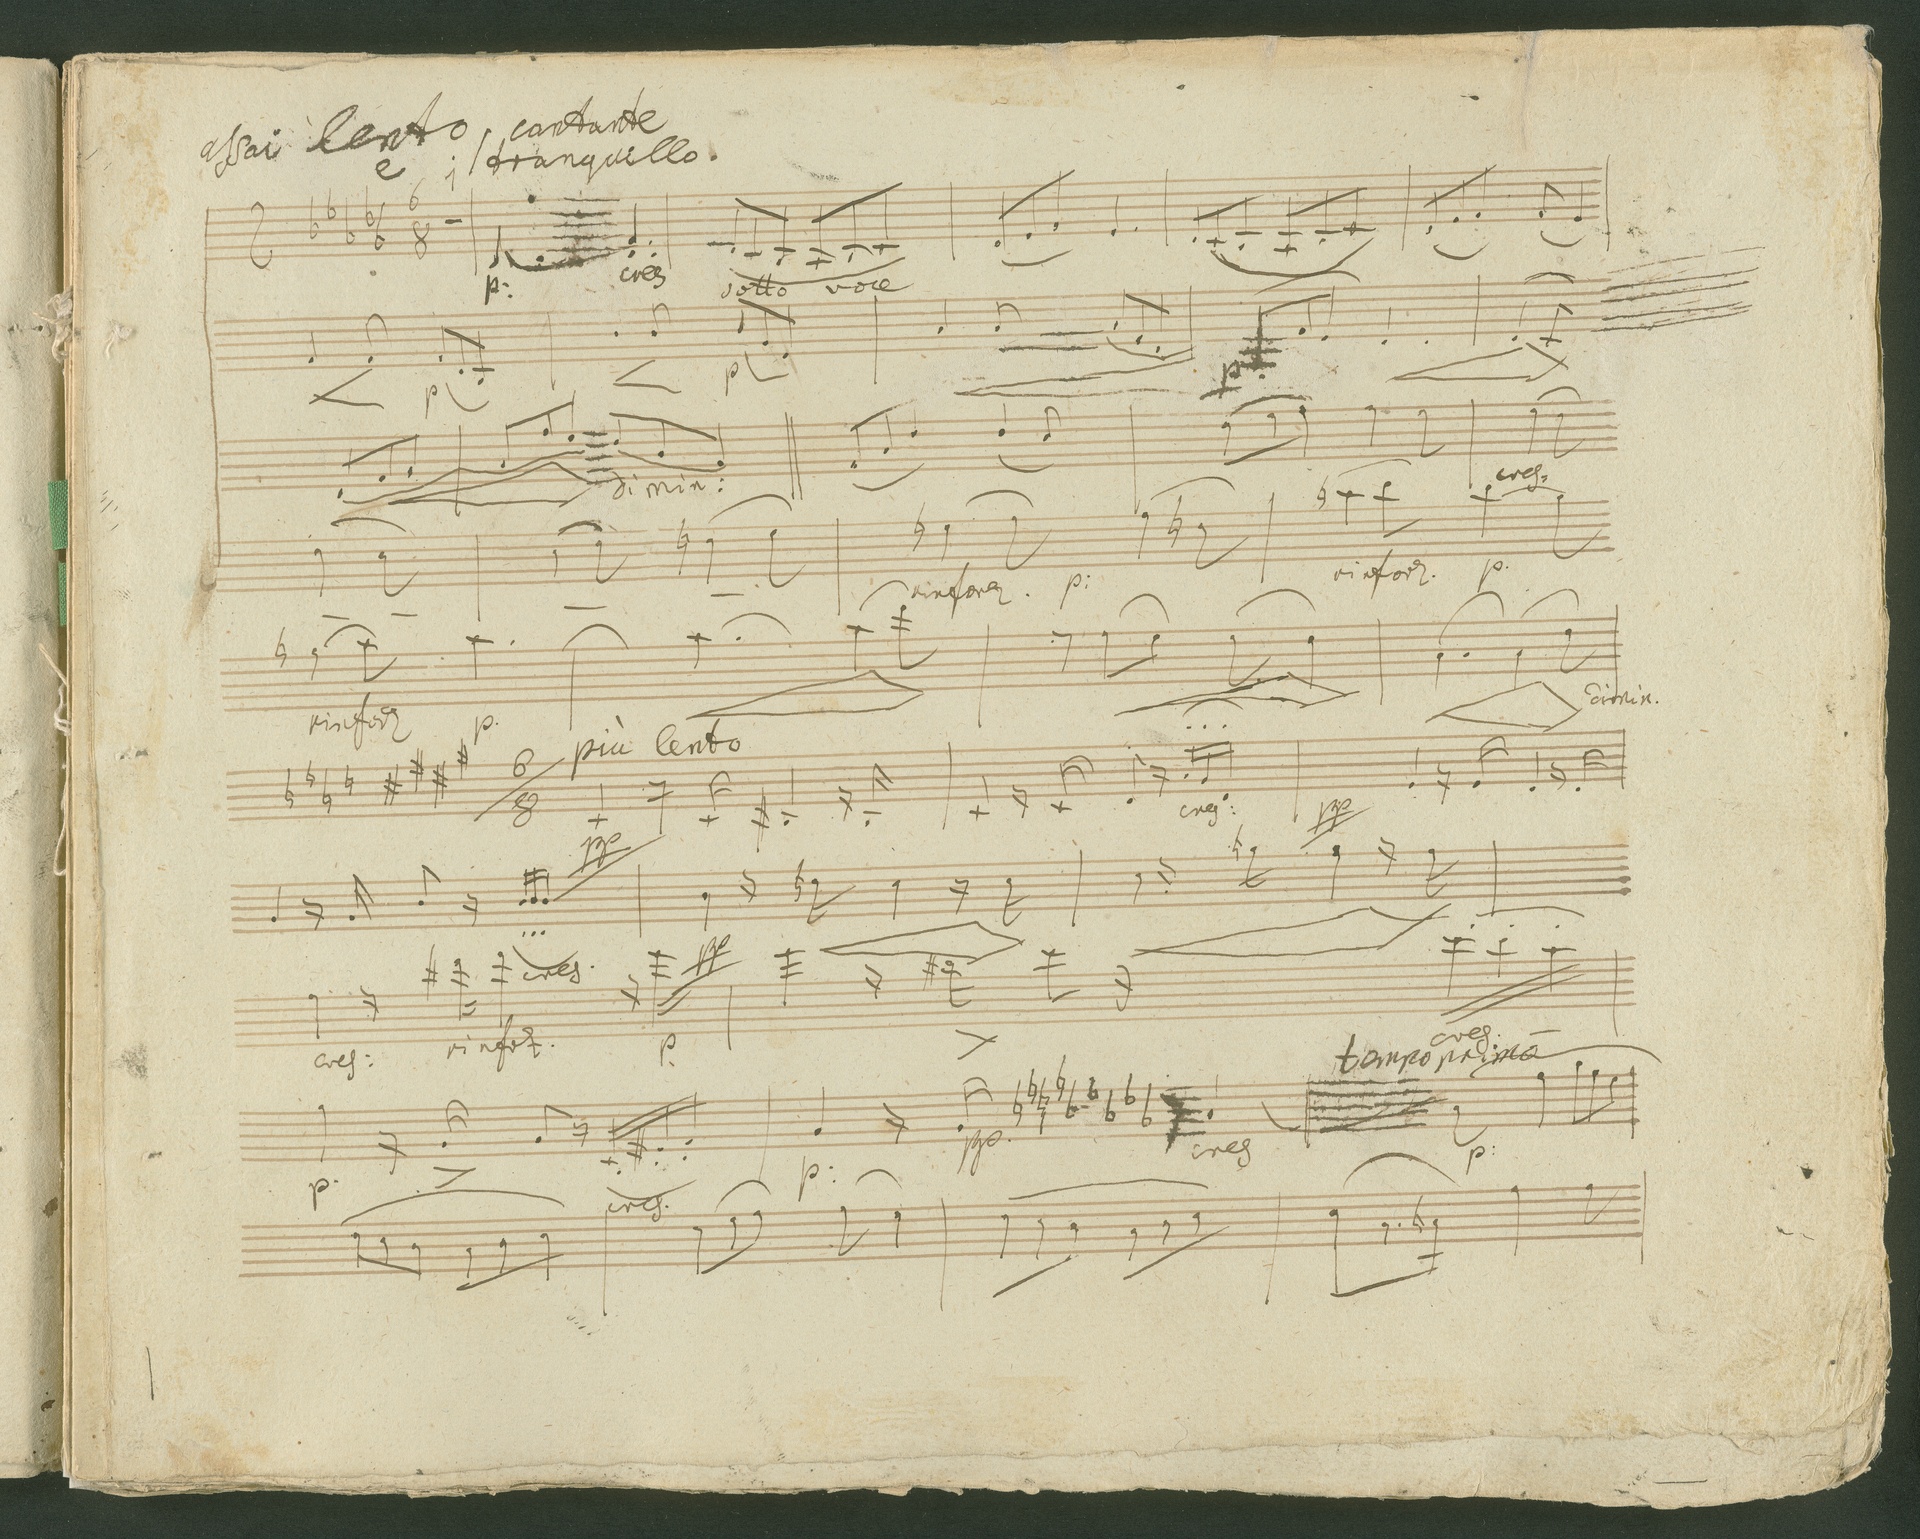 assai lento cantante
e tranquillo.
6
8
p: cres sotto voce
p p p
dimin:
cres:
rinforz. p: rinforz. p.
rinforz p. dimin.
6 più lento
8
pp cres: pp
cres. pp
cres: rinfor. p. cres.
tempo primo
p. cres. p: pp. cres p: